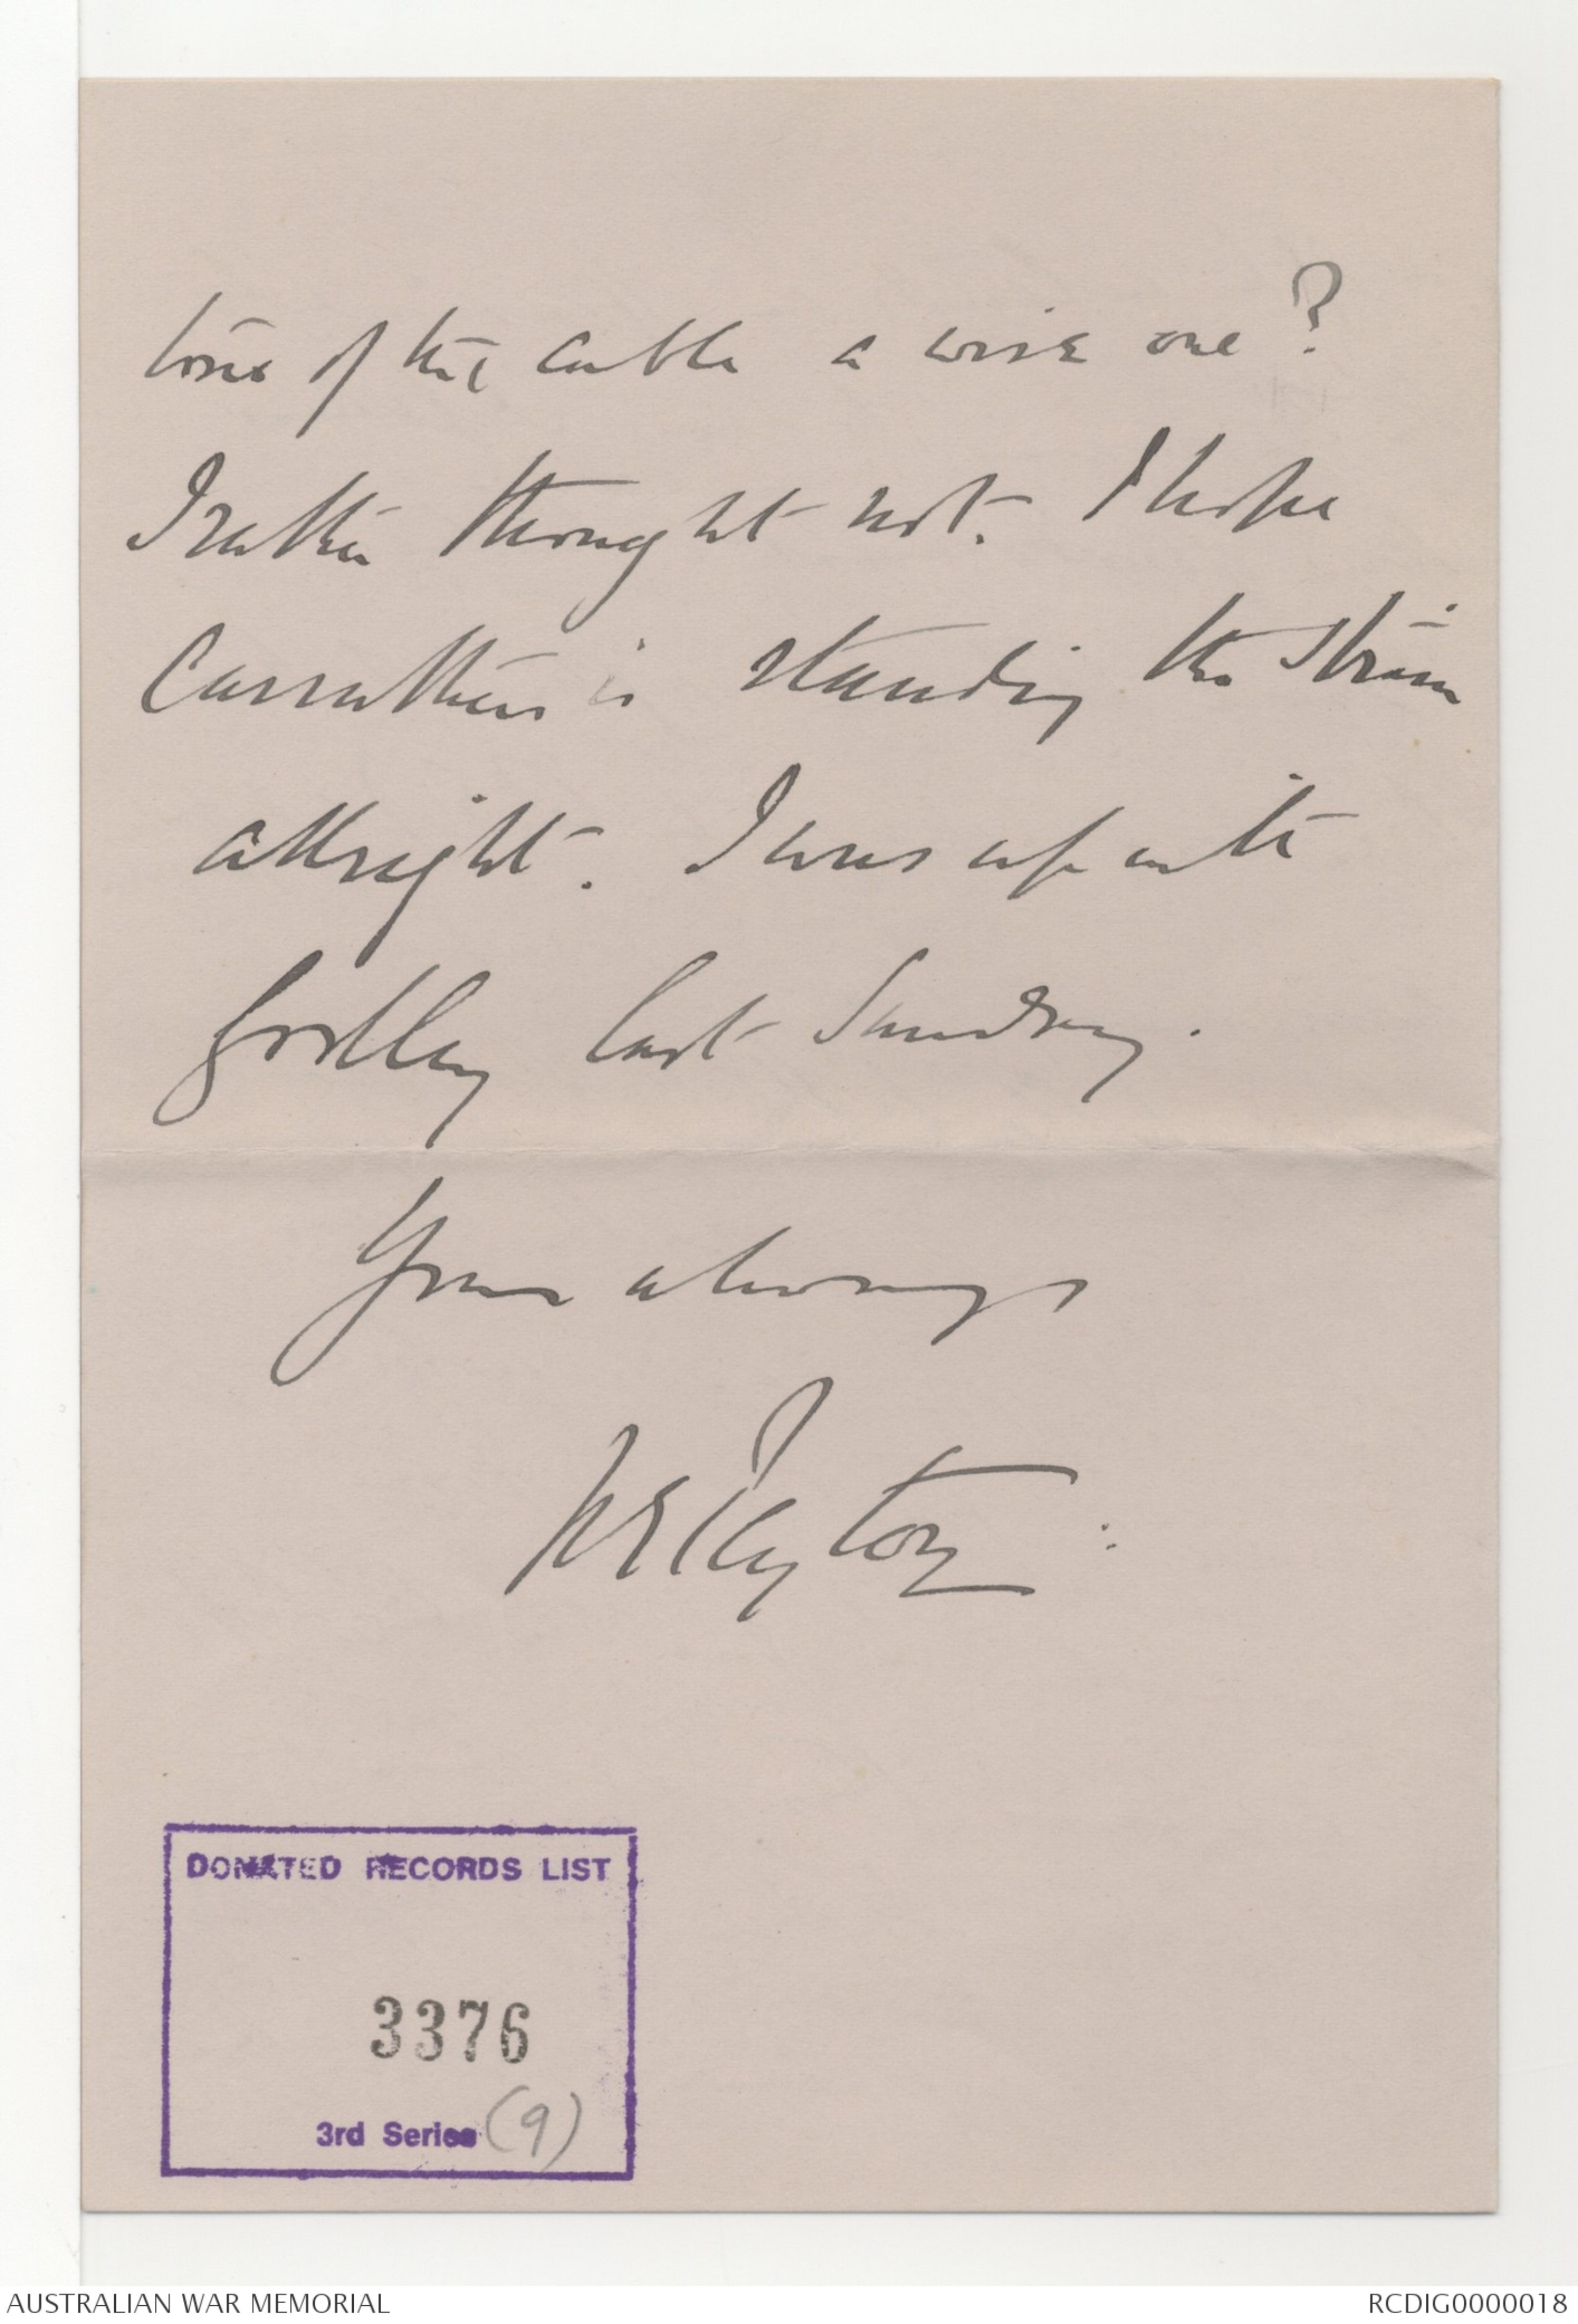 tone of his cable a wise one?
I rather thought not. I hope
Carruthers is standing the strain
allright. I was up with
Godley last Sunday.
Yours always
DONATED RECORDS LIST
3376
3rd Series (9)
AUSTRALIAN WAR MEMORIAL
RCDIG0000018